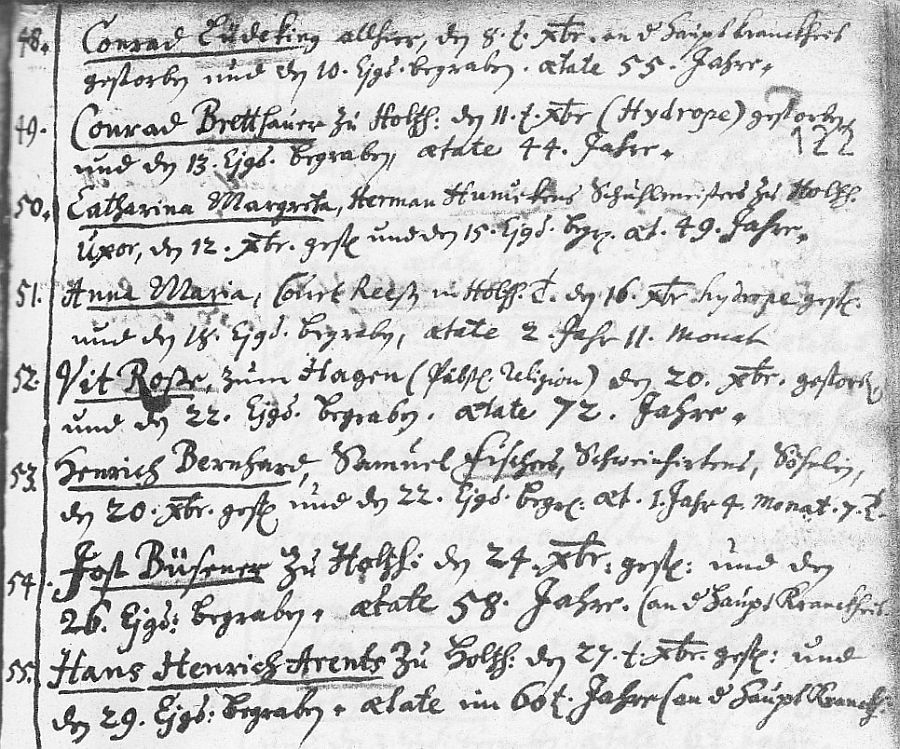 48. Conrad Lüdeking allhier, den 8. t. Xbr. an d Haupt Kranckheit
gestorben und den 10. Ejqs. begraben. ætate 55. Jahre.
49. Conrad Bretthauer zu Holtzh: den 11. t. Xbr (Hydrope) gestorben
122
und den 13. Ejqs. begraben, ætate 44. Jahre.
50. Catharina Margreta, Herman Schuhlmeisters zu Holtzh.
Uxor, den 12. Xbr. gest und den 15. Ejqs. begr. æt. 49. Jahre.
51. Anna Maria, Court in Holtzh. T. den 16. Xbr hydrope gest.
und den 18. Ejqs. begraben, ætate 2 Jahr 11. Monat
52. Vit Rose, zum Hagen (Päbstl. Religion) den 20. Xbr. gestorb
und den 22. Ejqs. begraben. ætate 72. Jahre.
53. Henrich Bernhard, Samuel Fischers, Schweinhirtens, Söhnlein,
den 20. Xbr. gest und den 22. Ejqs. begr: æt. 1. Jahr 4. Monat. 7. T.
54. Jost Büsener zu Holtzh: den 24. Xbr: gest: und den
26. Ejqs: begraben. ætate 58. Jahre. (an d Haupt Kranckheit
55. Hans Henrich Arents zu Holtzh: den 27. t. Xbr. gest: und
den 29. Ejqs: begraben. ætate im 60t. Jahre (an d Haupt Kranckh: